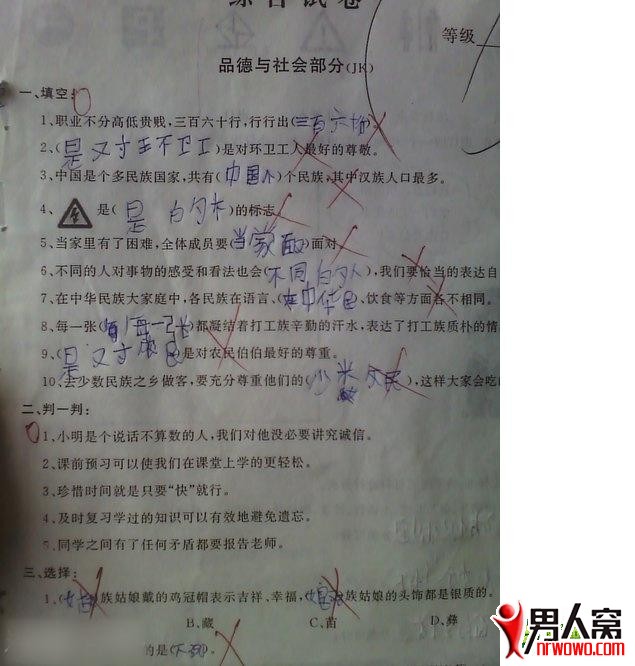 综合试卷
等级
品德与社会部分(JK)
一、填空: 0
1、职业不分高低贵贱,三百六十行,行行出(三百六行)。
2、(是又寸王不卫工)是对环卫工人最好的尊敬。
3、中国是个多民族国家,共有(中国人)个民族,其中汉族人口最多。
4、是(是 白勺木)的标志
5、当家里有了困难,全体成员要(当家面)面对
6、不同的人对事物的感受和看法也会(不同白勺人),我们要恰当的表达自
7、在中华民族大家庭中,各民族在语言、(在中华民)、饮食等方面各不相同。
8、每一张(每一张)都凝结着打工族辛勤的汗水,表达了打工族质朴的情
9、(是又寸农民)是对农民伯伯最好的尊重。
10、去少数民族之乡做客,要充分尊重他们的(少数民),这样大家会吃
二、判一判:
0 1、小明是个说话不算数的人,我们对他没必要讲究诚信。
2、课前预习可以使我们在课堂上学的更轻松。
3、珍惜时间就是只要“快”就行。
4、及时复习学过的知识可以有效地避免遗忘。
5、同学之间有了任何矛盾都要报告老师。
三、选择:
1、( )族姑娘戴的鸡冠帽表示吉祥、幸福,( )族姑娘的头饰都是银质的。
B、藏 C、苗 D、彝
的是( )。
男人窝
nrwowo.com